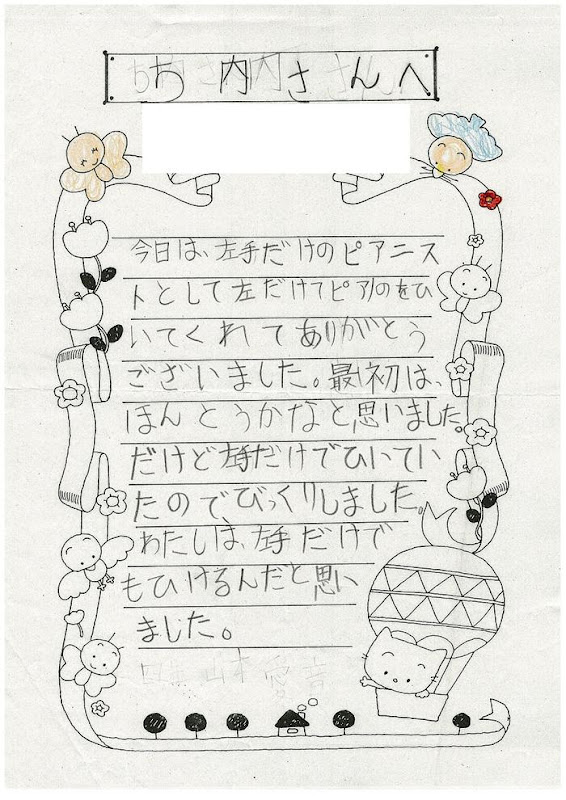 お内さんへ
今日は、左手だけのピアニス
トとして左だけでピアノのをひ
いてくれてありがとう
ございました。最初は、
ほんとうかなと思いました。
だけど左手だけでひいてい
たのでびっくりしました。
わたしは、左手だけで
もひけるんだと思い
ました。